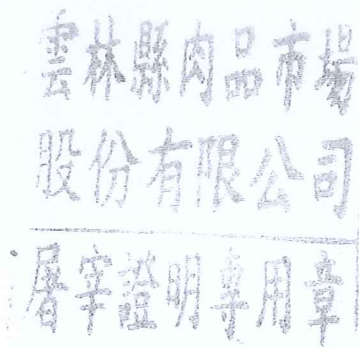 雲林縣肉品市場
股份有限公司
屠宰證明專用章